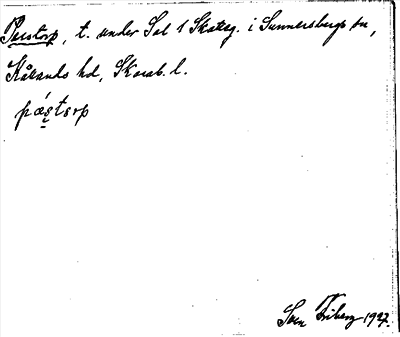 Perstorp, t. under Sal 1 Skatteg. i Sunnersbergs sn,
Kålands hd, Skarab. l.
pæ̀s̬tsrp
Sven Friberg 1927.